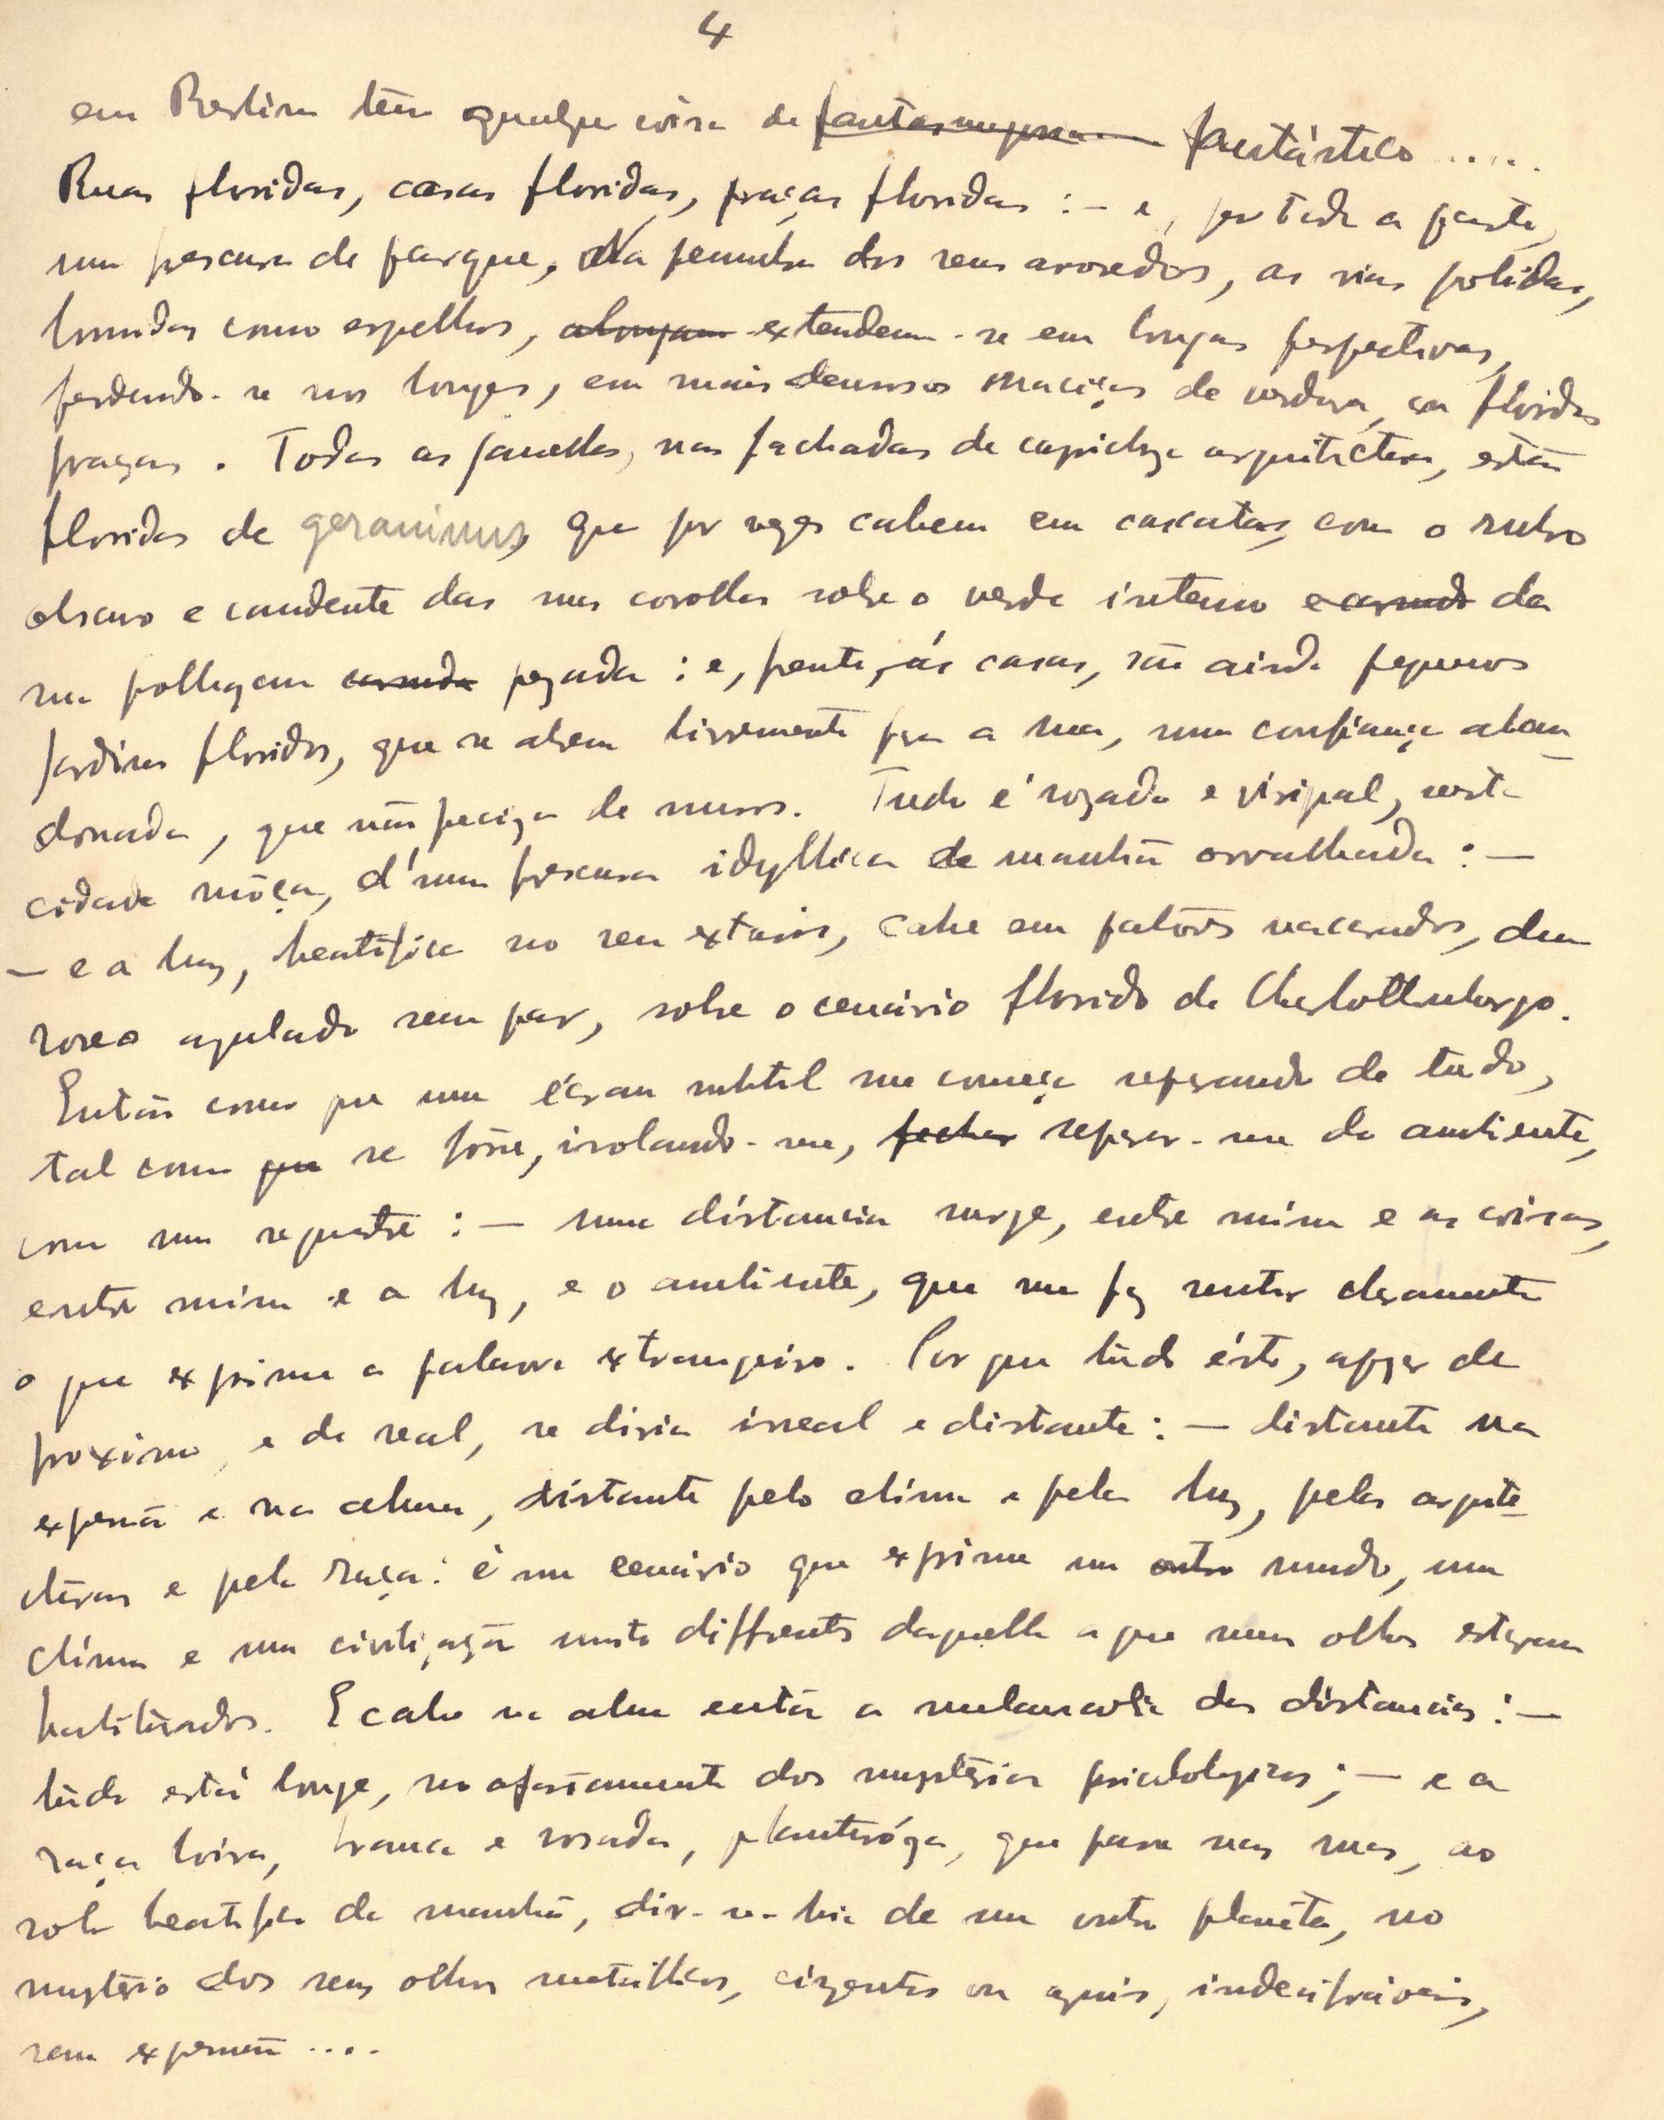 4
em Berlim tem qualquer coisa de fantástico .....
Ruas floridas, casas floridas, praças floridas : – e, por toda a parte,
uma frescura de parque. Na penumbra dos seus arvoredos, as vias polidas,
brunidas como espelhos, alongam extendem-se em longas perspectivas,
perdendo-se nos longes, em mais densos macissos de verdura, ou floridas
praças. Todas as janellas, nas fachadas de caprichosa arquitectura, estão
floridas de geranimus, que por vezes cahem em cascatas, com o rubro
obscuro e candente das suas corollas sobre o verde intenso e carnudo da
sua folhagem carnuda pezada : e, frente ás casas, são ainda pequenos
jardins floridos, que se abrem livremente para a rua, numa confiança aban-
donada, que não preciza de muros. Tudo é rozado e virginal, nesta
cidade môça, d'uma frescura idyllica de manhã orvalhada : –
– e a luz, beatifica no seu extasis, cahe em palôres nacarados, dum
roseo azulado sem par, sobre o cenário florido de Charlottenburgo.
Então como que um écran subtil me começa separando de tudo,
tal como que se fôsse, isolando-me, fechar separar-me do ambiente,
como um sequestre : – uma distancia surge, entre mim e as coisas,
entre mim e a luz, e o ambiente, que me faz sentir claramente
o que exprime a palavra extrangeiro. Porque tudo ésto, apezar de
proximo, e de real, se diria irreal e distante : – distante na
expressão e na alma, distante pelo clima e pela luz, pela arquite-
ctura e pela raça : é um cenário que exprime um outro mundo, um
clima e uma civilização muito differente daquella a que meus olhos estavam
habituados. E cahe na alma então a melancolia das distancias : –
tudo está longe, no afastamento dos mysterios psicologicos ; – e a
raça loira, branca e rosada, que passa nas ruas, ao
sol beatifico da manhã, dir-se-hia de um outro planeta, no
mystério dos seus olhos metallicos, cinzentos ou azuis, indecifráveis,
sem expressão ....